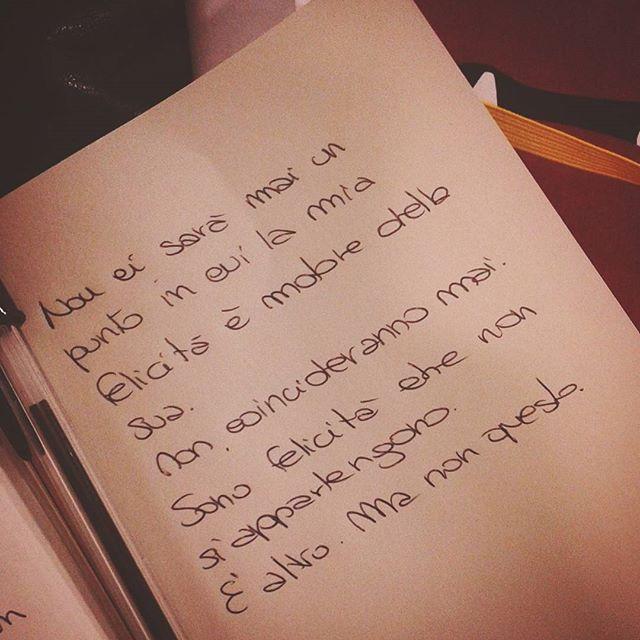 Non ci sarà mai un
punto in cui la mia
felicità è madre della
sua.
Non coincideranno mai.
Sono felicità che non
si appartengono.
È altro. Ma non questo.